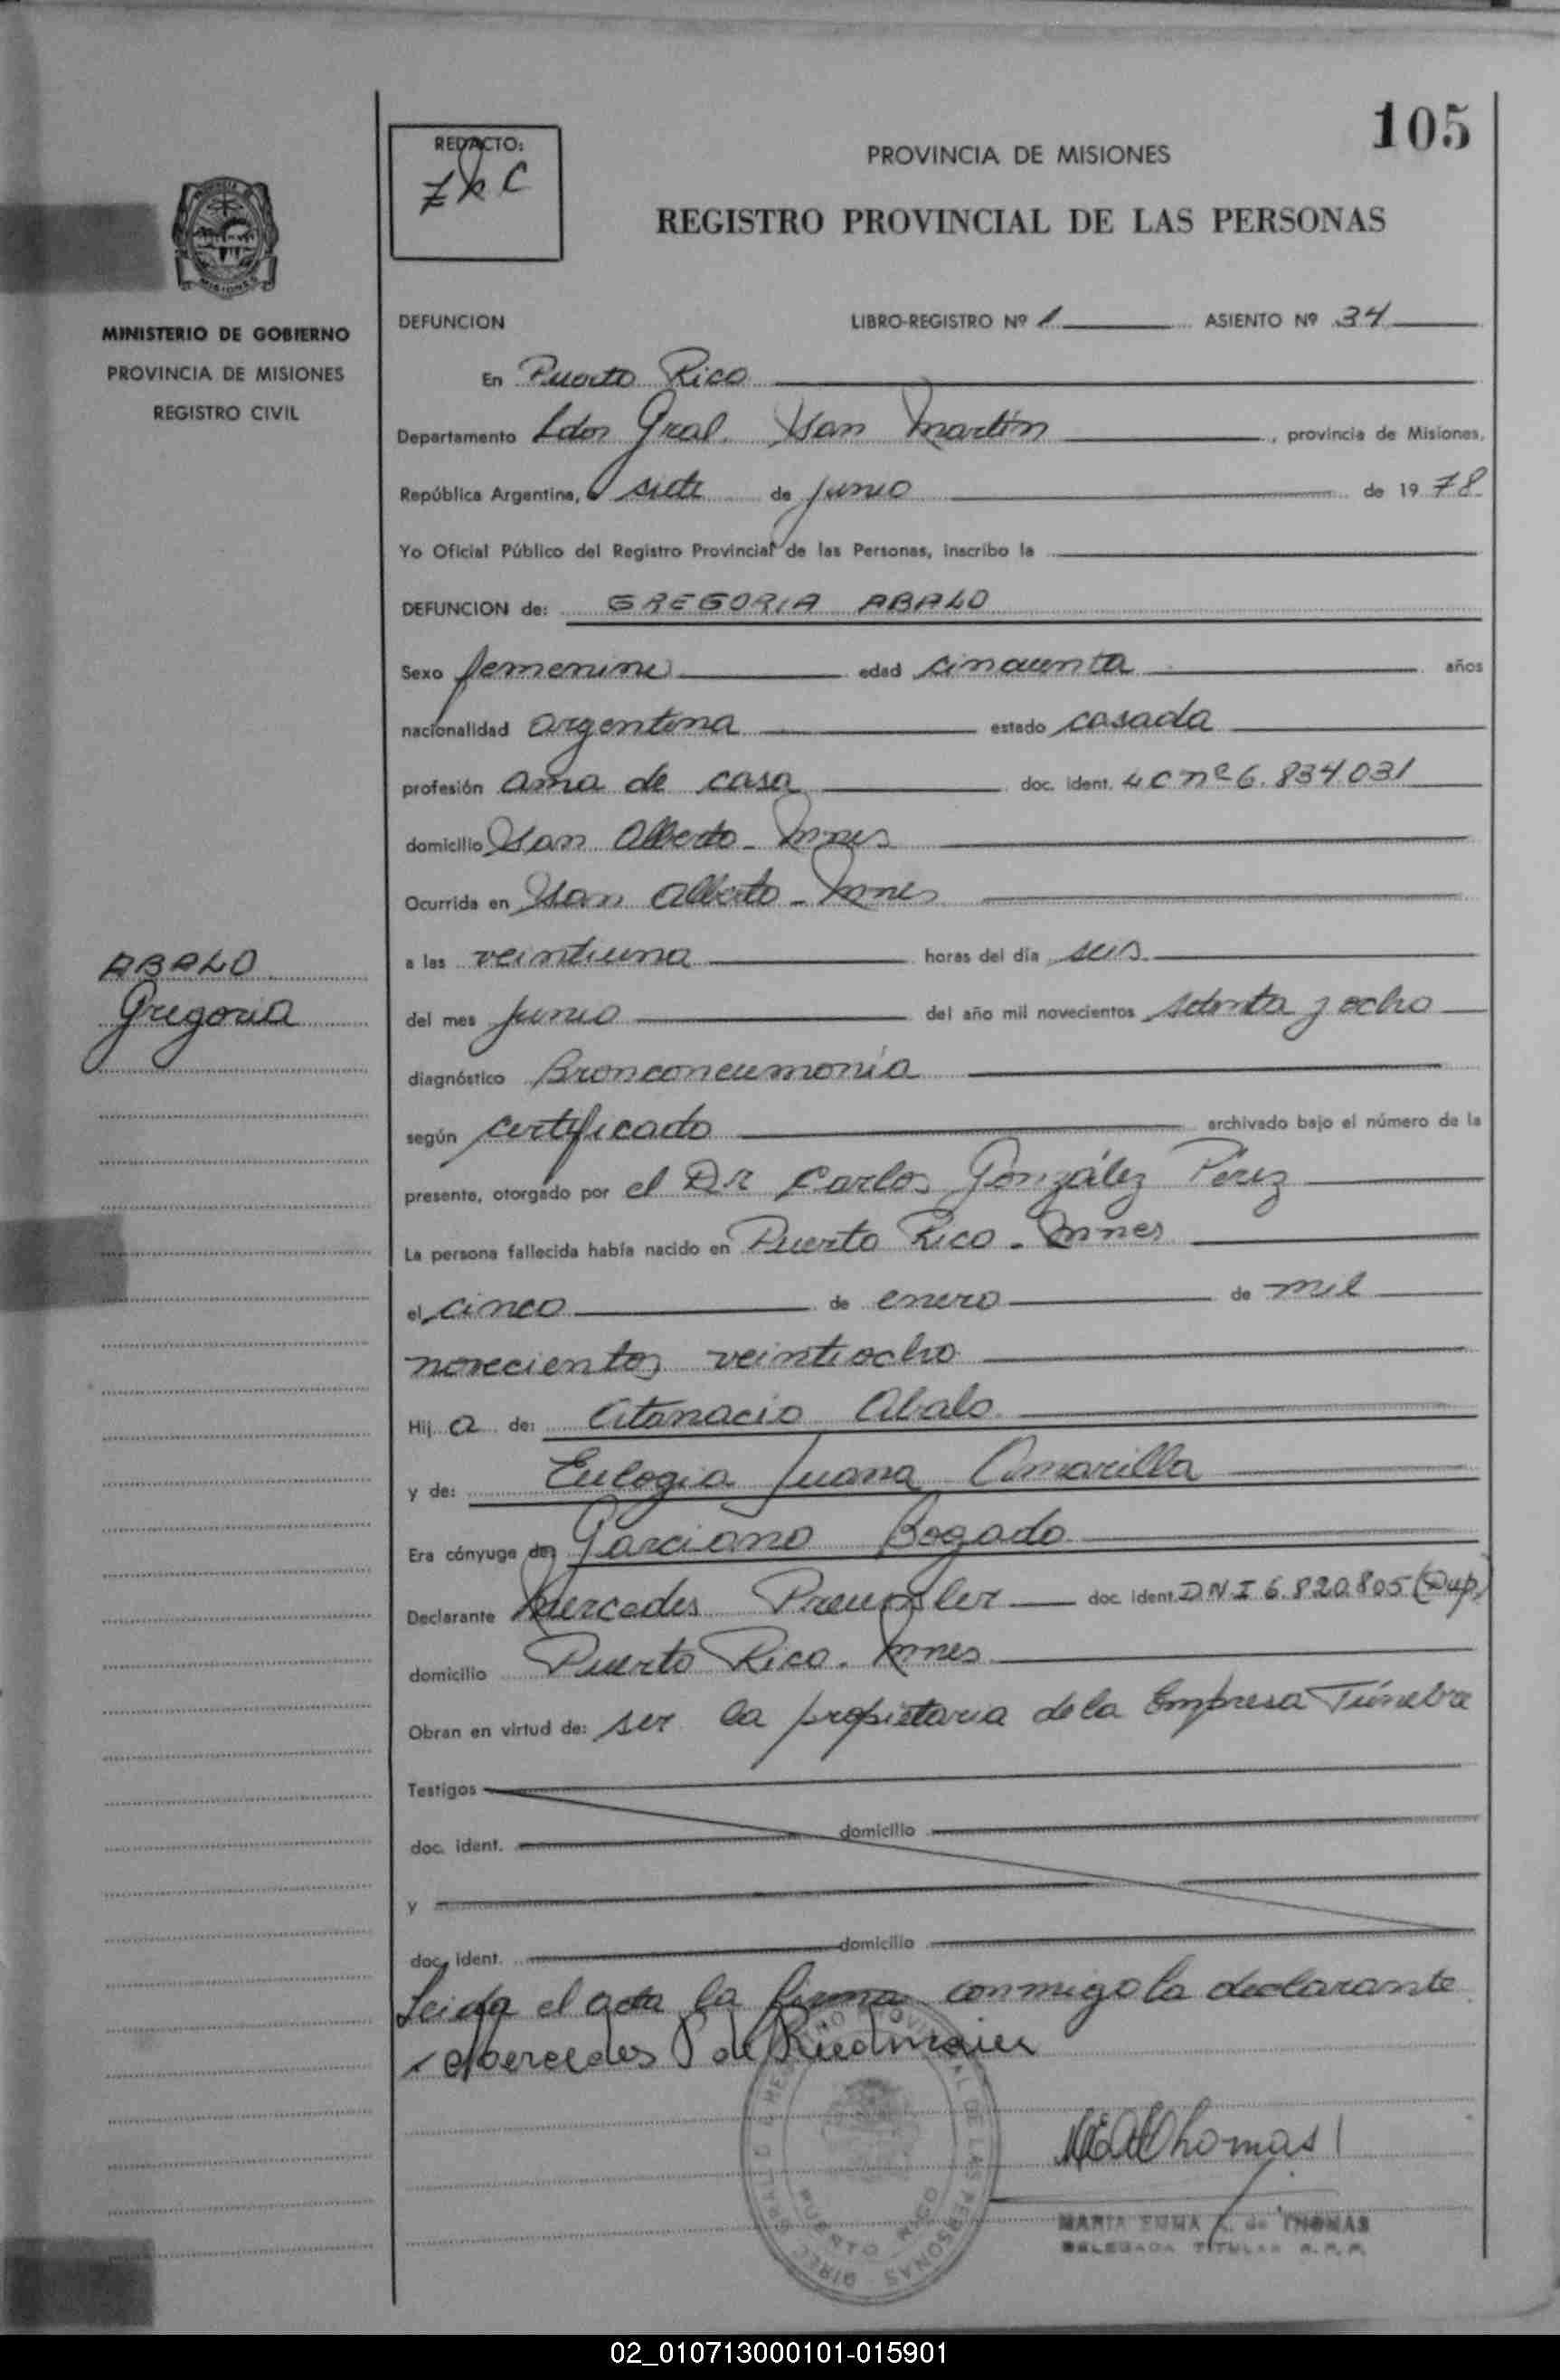 105
REDACTO:
PROVINCIA DE MISIONES
REGISTRO PROVINCIAL DE LAS PERSONAS
MINISTERIO DE GOBIERNO
PROVINCIA DE MISIONES
REGISTRO CIVIL
DEFUNCION LIBRO-REGISTRO Nº 1 ASIENTO Nº 34
En Puerto Rico
Departamento Ldor Gral. San Martín, provincia de Misiones,
República Argentina, a siete de junio de 1978
Yo Oficial Público del Registro Provincial de las Personas, inscribo la
DEFUNCION de: GREGORIA ABALO
Sexo femenino edad cincuenta años
nacionalidad argentina estado casada
profesión ama de casa doc. ident. LC nº 6.834.031
domicilio San Alberto - Mnes
Ocurrida en San Alberto - Mnes
a las veintiuna horas del día seis
del mes junio del año mil novecientos setenta y ocho
ABALO
Gregoria
diagnóstico Bronconeumonía
según certificado archivado bajo el número de la
presente, otorgado por el Dr Carlos González Pérez
La persona fallecida había nacido en Puerto Rico - Mnes
el cinco de enero de mil
novecientos veintiocho
Hija de: Atanacio Abalo
y de: Eulogia Juana Amarilla
Era cónyuge de: Garciano Bogado
Declarante Mercedes Preussler doc. ident. DNI 6.820.805 (Dup.)
domicilio Puerto Rico - Mnes
Obran en virtud de: ser la propietaria de la Empresa Fúnebre
Testigos
doc. ident. domicilio
y
doc. ident. domicilio
Leida el acta la firma conmigo la declarante
Mercedes P de Riedmaier
MARIA EMMA de THOMAS
DELEGADA TITULAR R.P.P.
PUERTO RICO
02_010713000101-015901